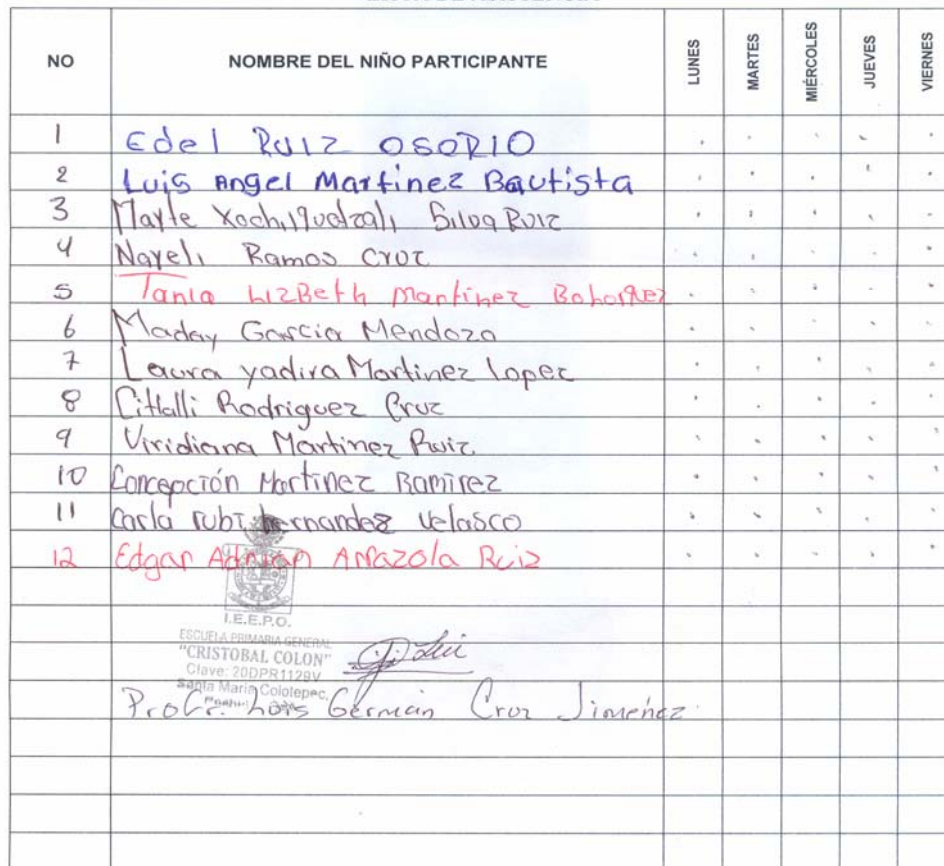 NO NOMBRE DEL NIÑO PARTICIPANTE LUNES MARTES MIÉRCOLES JUEVES VIERNES
1 Edel RUIZ OSORIO
2 Luis Angel Martinez Bautista
3 Mayte Xochilquetzali Silva Ruiz
4 Nayeli Ramos Cruz
5 Tania LizBeth Martinez Bohorquez
6 Maday Garcia Mendoza
7 Laura yadira Martinez lopez
8 Citlalli Rodriguez Cruz
9 Viridiana Martinez Ruiz.
10 Concepción Martinez Ramirez
11 Carla rubi hernandez velasco
12 Edgar Adrian Arrazola Ruiz
I.E.E.P.O.
ESCUELA PRIMARIA GENERAL
"CRISTOBAL COLON"
Clave: 20DPR1129V
Santa Maria Colotepec,
Profr. Luis German Cruz Jimenez